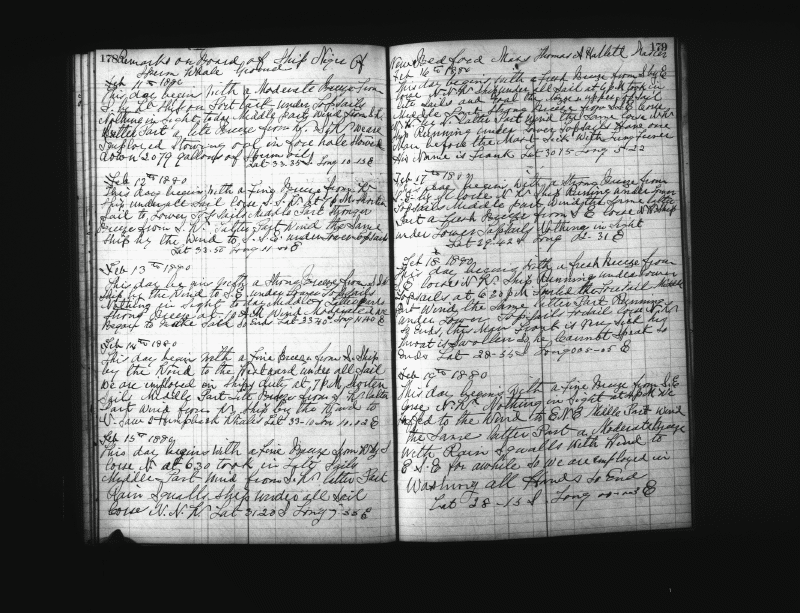 178 Remarks on Board of Ship Niger of
Sperm Whale Ground
Feb 11th 1880
This day begins with a Moderate Breeze from
Nothing in Sight, today Middle Part Wind from
latter Part a lite Breeze from we are
Employed Stowing oil in fore hole Stowed
down 2079 gallons of Sperm oil
Lat 33-35 S Long 10-15 E
Feb 12th 1880
This day begins with a Fine Breeze from
Ship under all Sail
Sail to Lower Topsails Middle Part Stronger
Breeze from latter Part Wind the Same
Ship by the Wind to under lower topsails
Lat 33-50 Long 11-00 E
Feb 13th 1880
This day begins with a Strong Breeze from
Ship by the Wind to S.E. under Lower Topsails
Nothing in Sight to day Middle & latter Parts
Strong Breeze at Wind Moderated we
Began to make Sail So Ends Lat 33-40 Long E
Feb 14th 1880
This day begins with a Fine Breeze from Ship
by the Wind to the Westward under all Sail
we are employed in Ships duty at 7 PM Shorten
Sail Middle Part lite Breeze from latter
Part Wind from Ship by the Wind to
Saw 2 Humpback Whales Lat 33-10 Lon 10.02 E
Feb 15th 1880
This day begins with a Fine Breeze from W by S
Corse N at 6.30 took in Lite Sails
Middle Part Wind from S.W. latter Part
Rain Squalls Ship under all Sail
Corse N.N.W. Lat 31-20 S Long 7-55 E
New Bedford Mass Thomas A Hallett Master 179
Feb 16th 1880
This day begins with a fresh Breeze from S by E
Corse N.N.W. Ship under all Sail at 6 PM took in
lite Sails and
Middle Part Strong Breeze from S.E. Corse
latter Part Wind the Same Corse N.W.
Ship Running under Lower Topsails Have one
Man before the Mast Sick with Lung Fever
His Name is Frank Lat 30 15 Long 5-22
Feb 17th 1880
This day begins with a Strong Breeze from
S.E. Corse N.W. Ship Running under lower
Topsails Middle part Wind the Same latter
Part a fresh Breeze from S E Corse N.W. Ship
under Lower Topsails Nothing in Sight
Lat 29-42 S Long 02-31 E
Feb 18th 1880
This day begins with a fresh Breeze from
S.E. Corse N.W. Ship Running under Lower
Topsails at 6.30 PM Furled the Foresail Middle
Part Wind the Same latter Part Running
under Lower Topsails Foresail Corse N.W.
So Ends, this Man Frank is very Sick his
throat is Swollen So he Cannot Speak So
Ends Lat 28-55 S Long 00-05 E
Feb 19th 1880
This day begins with a Fine Breeze from S.E.
Corse N.W. Nothing in Sight at 6 PM We
luffed to the Wind to E.N.E Middle Part Wind
the Same latter Part a Moderate Breeze
With Rain Squalls With Wind to
E.S.E. for awhile So we are employed in
Washing all Hands So End
Lat 28-13 S Long 00-03 E